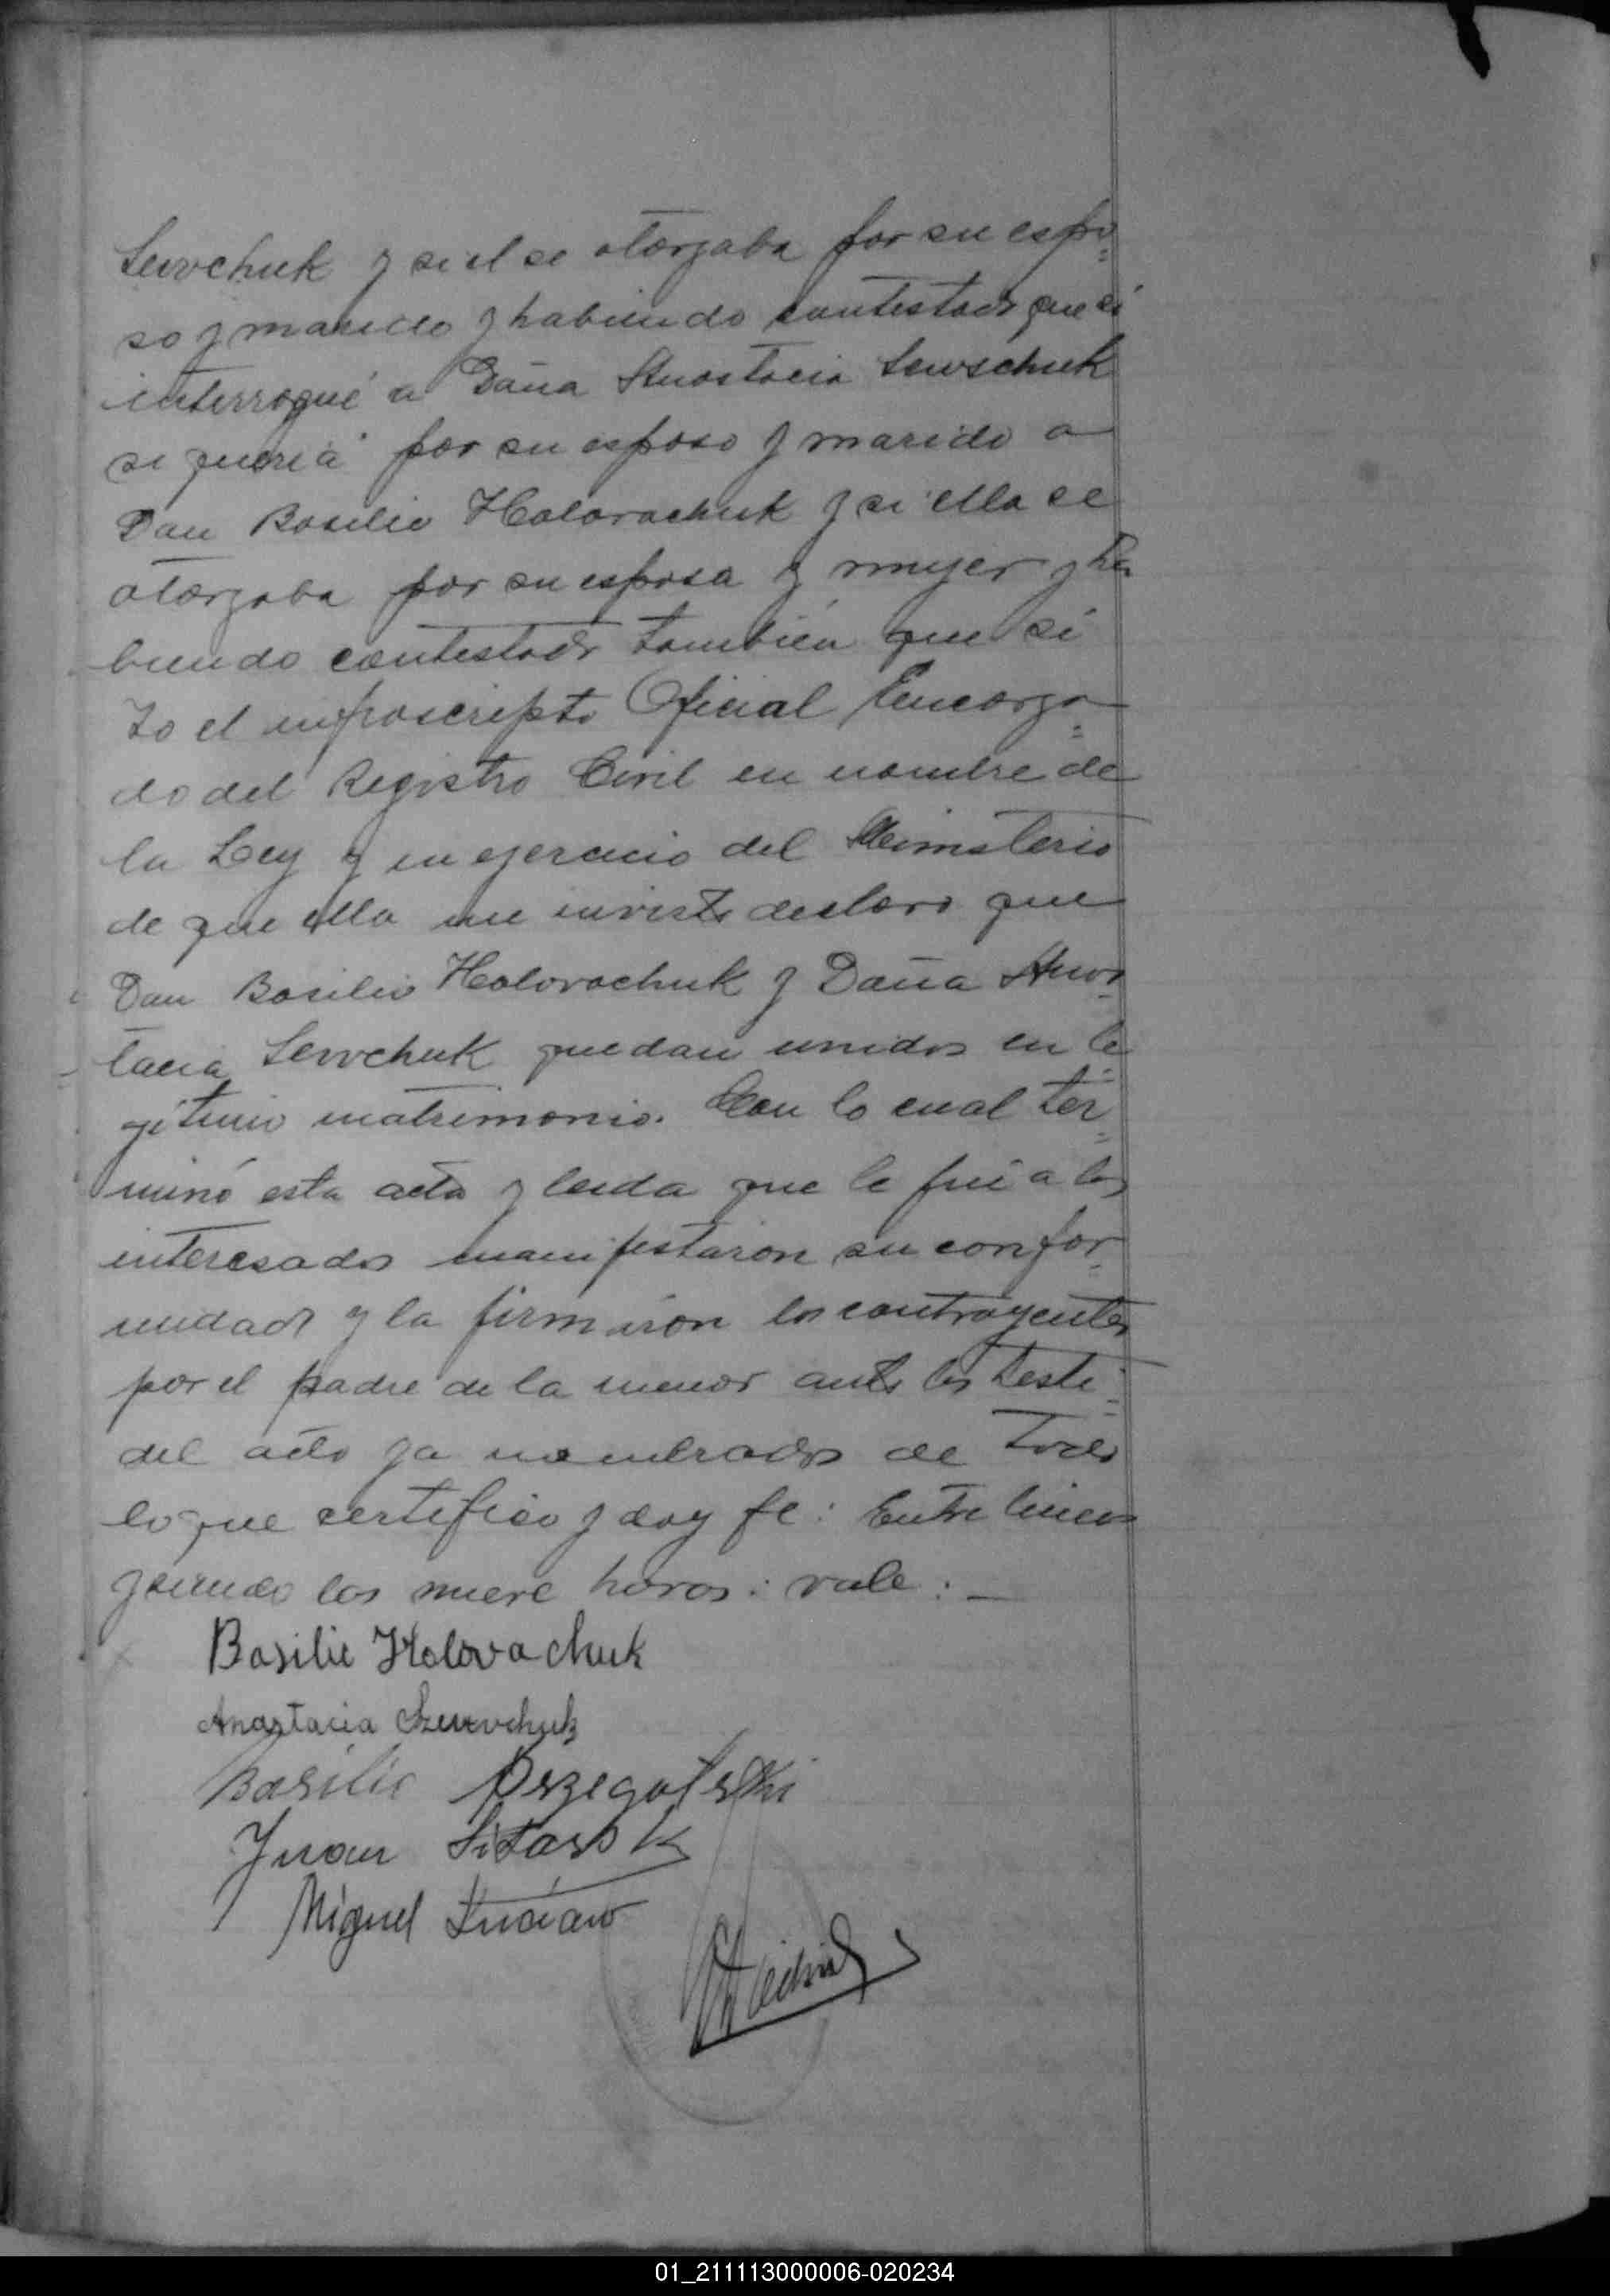 Sewchuk y si el se otorgaba por su espo=
so y marido y habiendo contestado que si
interrogué a Doña Anastacia Sewschuk
si queria por su esposo y marido a
Don Basilio Holovachuk y si ella se
otorgaba por su esposa y mujer y ha
biendo contestado también que si
Yo el infroscripto Oficial Encarga=
do del Registro Civil en nombre de
la Ley y en ejercicio del Ministerio
de que ella me inviste declaro que
Don Basilio Holovachuk y Doña Anas=
tacia Sewchuk quedan unidos en le=
gitimo matrimonio. Con lo cual ter=
minó esta acta y leida que le fué a los
interesados manifestaron su confor=
midad y la firmaron los contrayentes
por el padre de la menor ante los testi=
del acto ya nombrados de todo
lo que certifico y doy fe: Entre lineas
y siendo las nueve horas: vale: —
Basilie Holovachuk
Anastacia Szewchuk
Basilio
Juan
Miguel
01_211113000006-020234